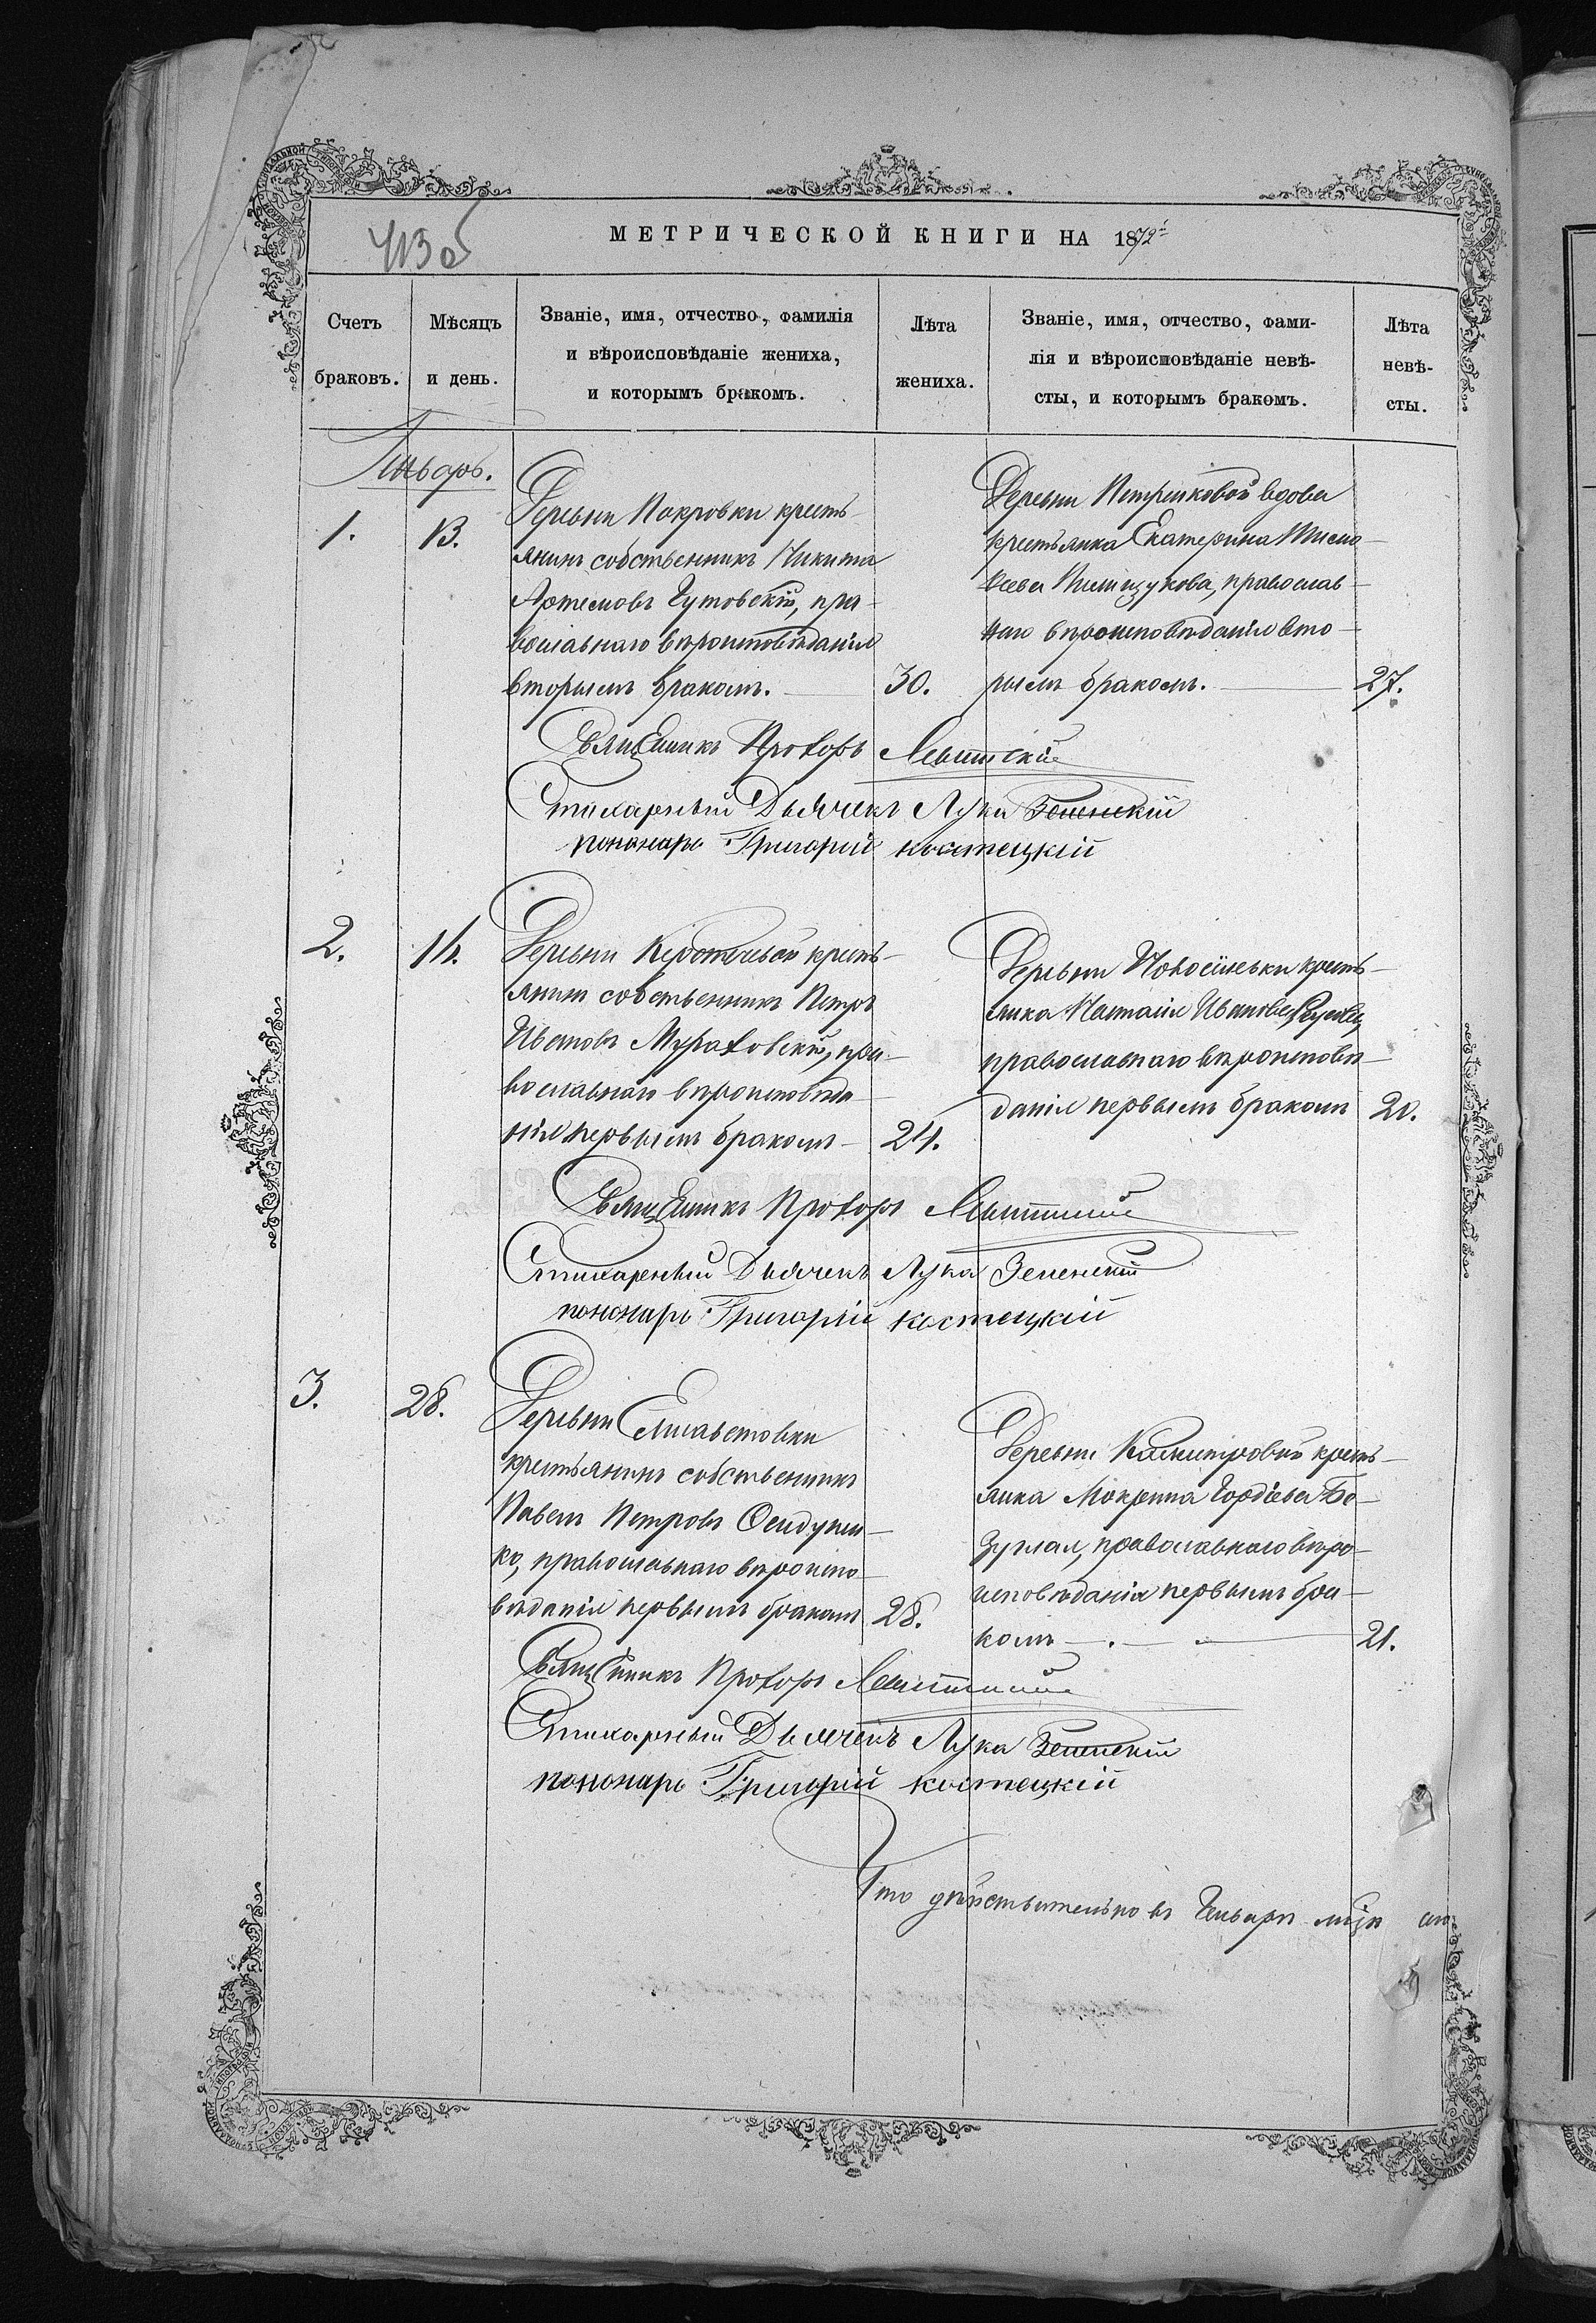 413 об
МЕТРИЧЕСКОЙ КНИГИ НА 1872й
Счетъ
браковъ.
Мѣсяцъ
и день.
Званіе, имя, отчество, фамилія
и вѣроисповѣданіе жениха,
и которымъ бракомъ.
Лѣта
жениха.
Званіе, имя, отчество, фами-
лія и вѣроисповѣданіе невѣ-
сты, и которымъ бракомъ.
Лѣта
невѣ-
сты.
Январь.
1.
13.
Деревни Покровки кресть-
янинъ собственникъ Никита
Артемовъ Гутовскій, пра-
вославнаго вѣроисповѣданія
вторымъ бракомъ.
30.
Деревни Петриковой вдова
крестьянка Екатерина Тимо-
ѳеева, православ-
наго вѣроисповѣданія вто-
рымъ бракомъ.
27.
Священникъ Прохоръ Левитскій
Стихарный Дьячекъ Лука Зеленскій
пономарь Григорій Костецкій
2.
14.
Деревни кресть-
янинъ собственникъ Петръ
Ивановъ Мураховскій, пра-
вославнаго вѣроисповѣда-
нія первымъ бракомъ
24.
Деревни Новосілевки кресть-
янка Наталія Иванова,
православнаго вѣроисповѣ-
данія первымъ бракомъ
20.
Священникъ Прохоръ Левитскій
Стихарный Дьячекъ Лука Зеленскій
пономарь Григорій Костецкій
3.
28.
Деревни Елисаветовки
крестьянинъ собственникъ
Павелъ Петровъ
ко, православнаго вѣроиспо-
вѣданія первымъ бракомъ
28.
Деревни кресть-
янка Мокрина Гордіева Бе-
зуглая, православнаго вѣро-
исповѣданія первымъ бра-
комъ
21.
Священникъ Прохоръ Левитскій
Стихарный Дьячекъ Лука Зеленскій
пономарь Григорій Костецкій
Что дѣйствительно въ Январѣ мцѣ сего